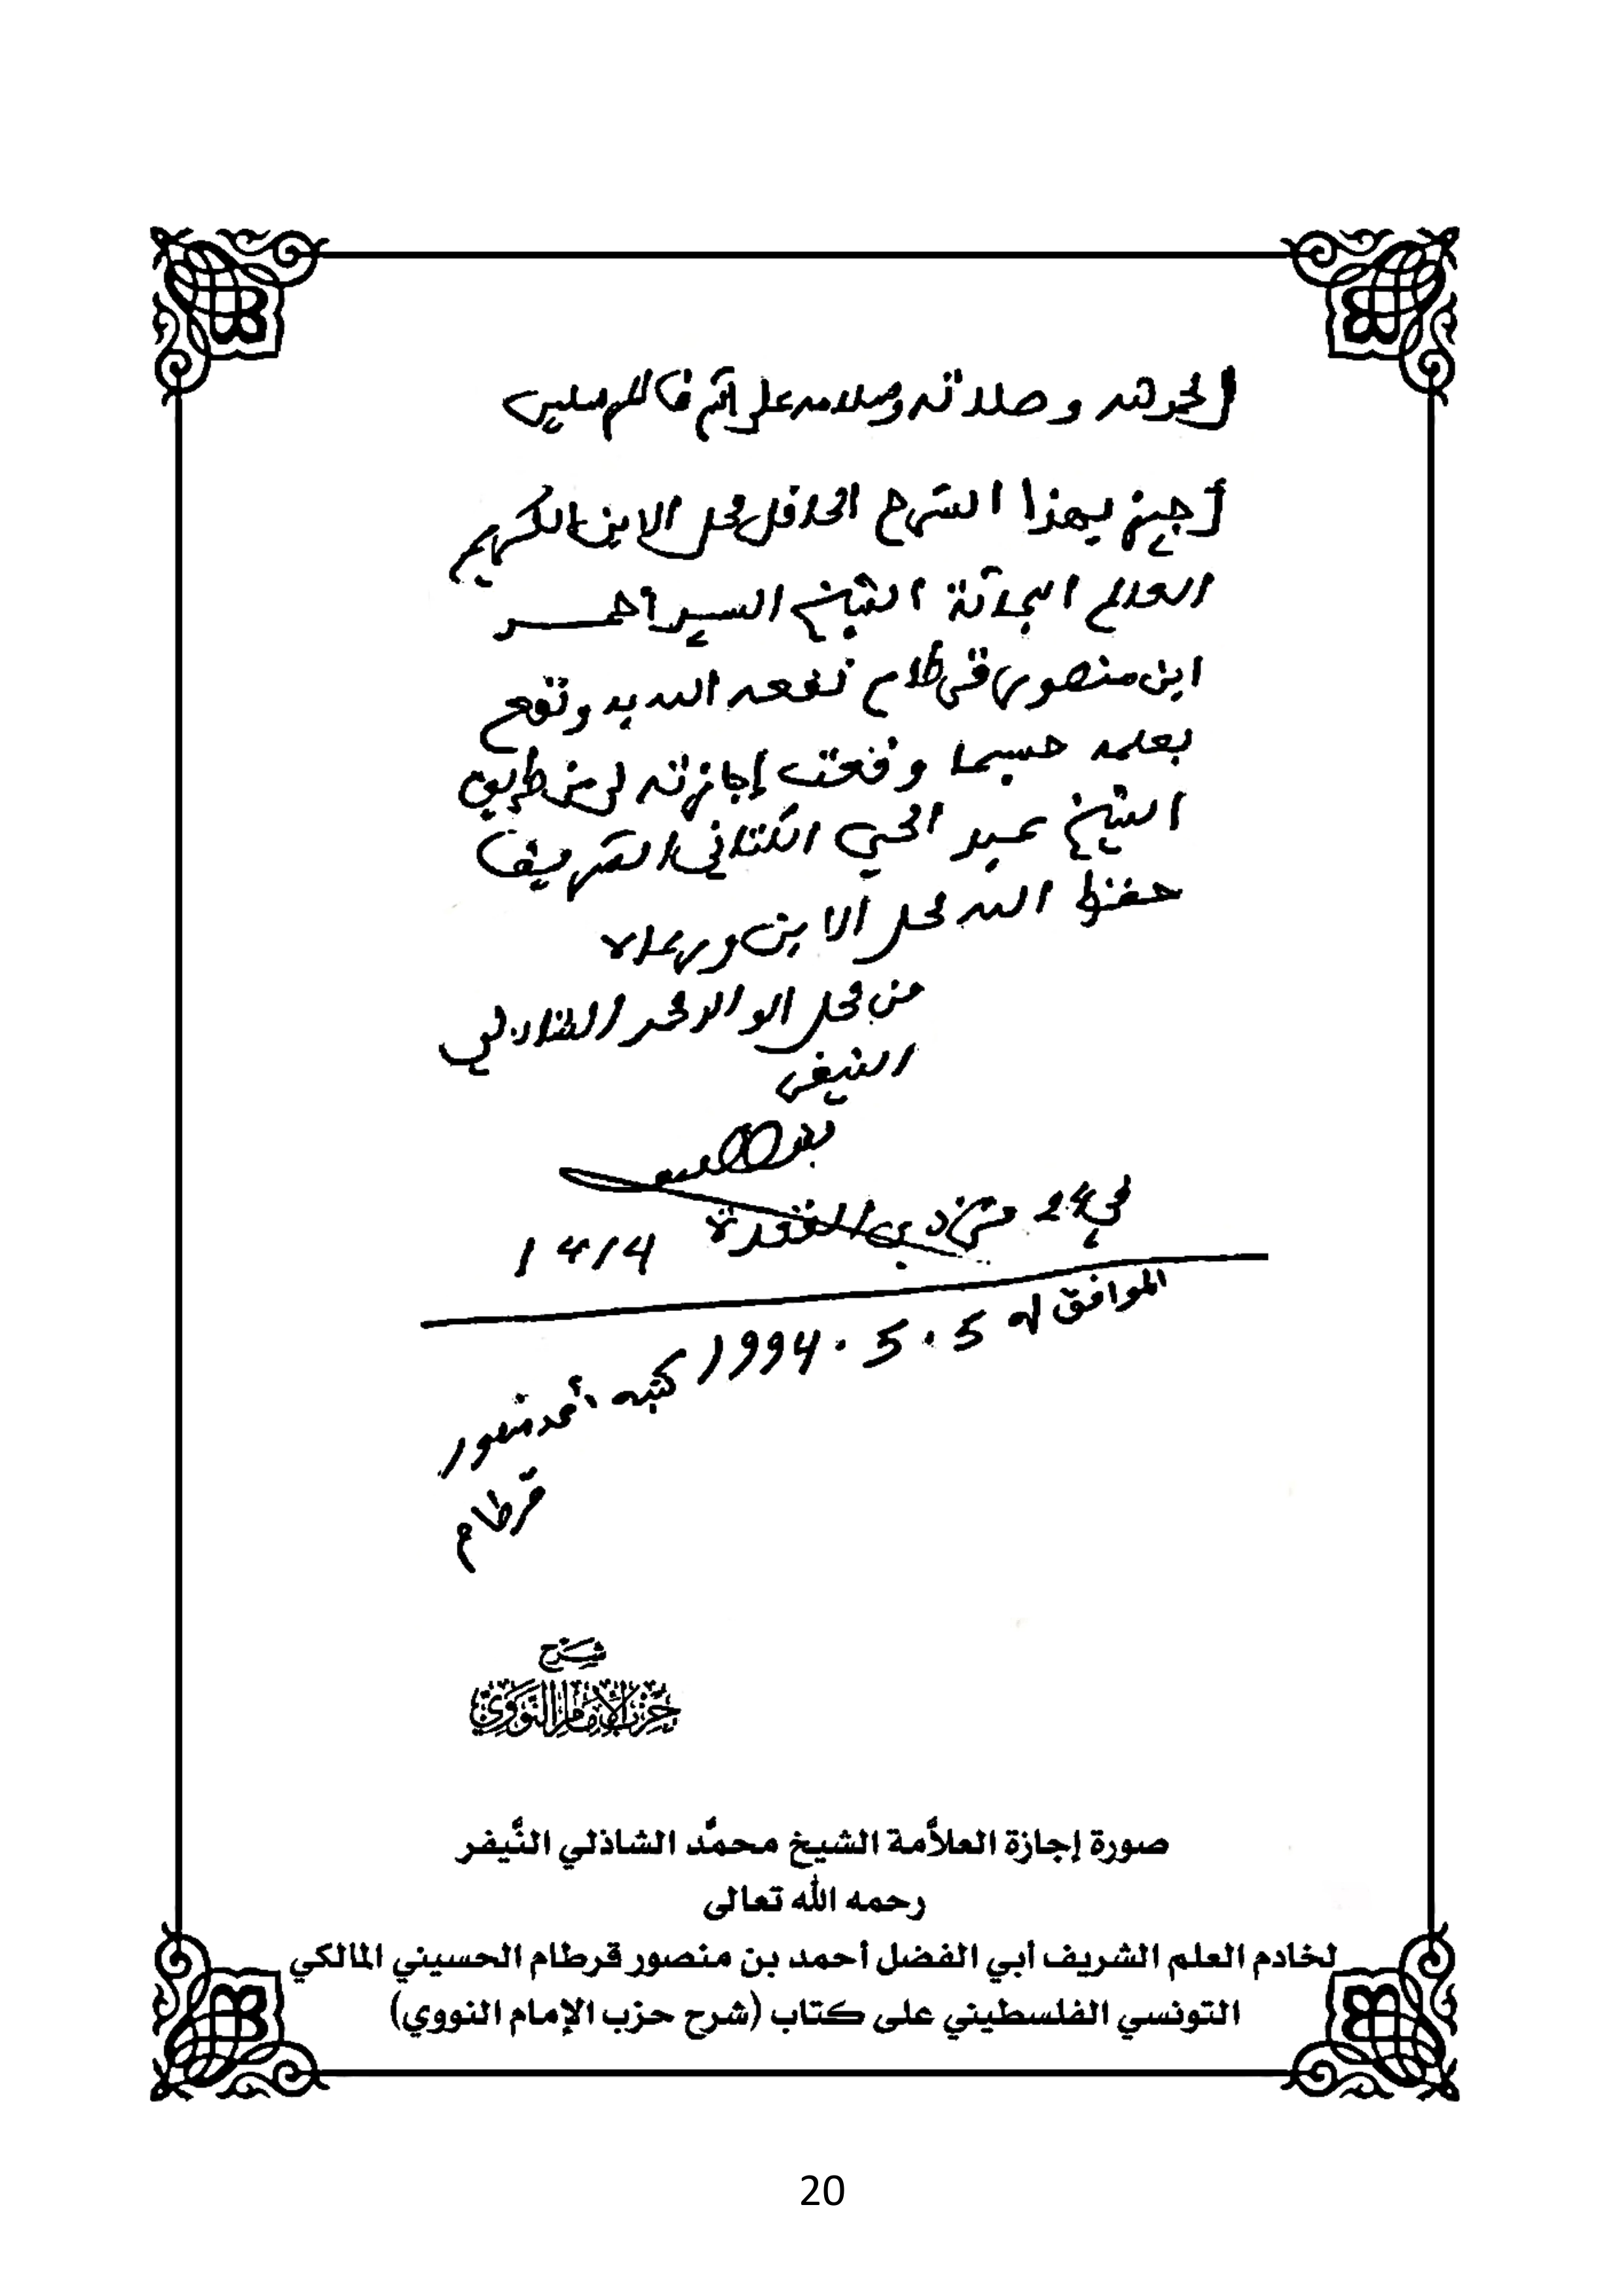 الحمد لله وصلاته وسلامه على أشرف المرسلين
أجيز بهذا الشرح الحافل محل الابن الكريم
العالم البحاثة الشيخ السيد أحمد
ابن منصور قرطام نفعه الله به ونفع
بعلمه حسبما وقعت إجازته لي من طريق
الشيخ عبد الحي الكتاني الشريف
حفظ الله محل الابن ورعاه
من محل الوالد محمد الشاذلي
النيفر
في 24 من ذي القعدة 1414
الموافق له 5.5.1994
كتبه أحمد منصور
قرطام
شرح
حزب الإمام النووي
صورة إجازة العلاَّمة الشيخ محمَّد الشاذلي النَّيفر
رحمه الله تعالى
لخادم العلم الشريف أبي الفضل أحمد بن منصور قرطام الحسيني المالكي
التونسي الفلسطيني على كتاب (شرح حزب الإمام النووي)
20